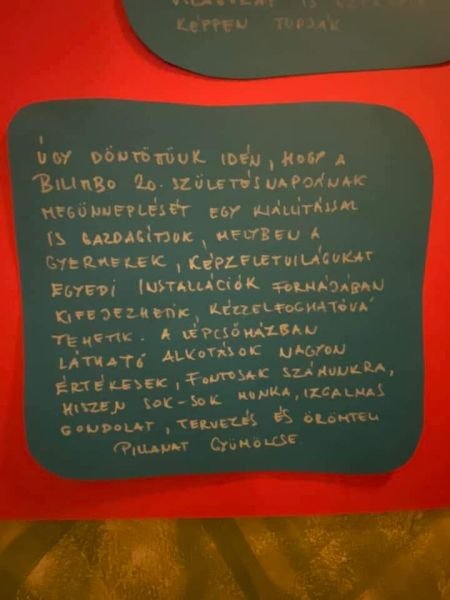 VILÁGUKAT IS
KÉPPEN TUDJÁK
ÚGY DÖNTÖTTÜNK IDÉN, HOGY A
BILIMBO 20. SZÜLETÉSNAPJÁNAK
MEGÜNNEPLÉSÉT EGY KIÁLLÍTÁSSAL
IS GAZDAGÍTJUK, MELYBEN A
GYERMEKEK, KÉPZELETVILÁGUKAT
EGYEDI INSTALLÁCIÓK FORMÁJÁBAN
KIFEJEZHETIK, KÉZZELFOGHATÓVÁ
TEHETIK. A LÉPCSŐHÁZBAN
LÁTHATÓ ALKOTÁSOK NAGYON
ÉRTÉKESEK, FONTOSAK SZÁMUNKRA,
HISZEN SOK-SOK MUNKA, IZGALMAS
GONDOLAT, TERVEZÉS ÉS ÖRÖMTELI
PILLANAT GYÜMÖLCSE